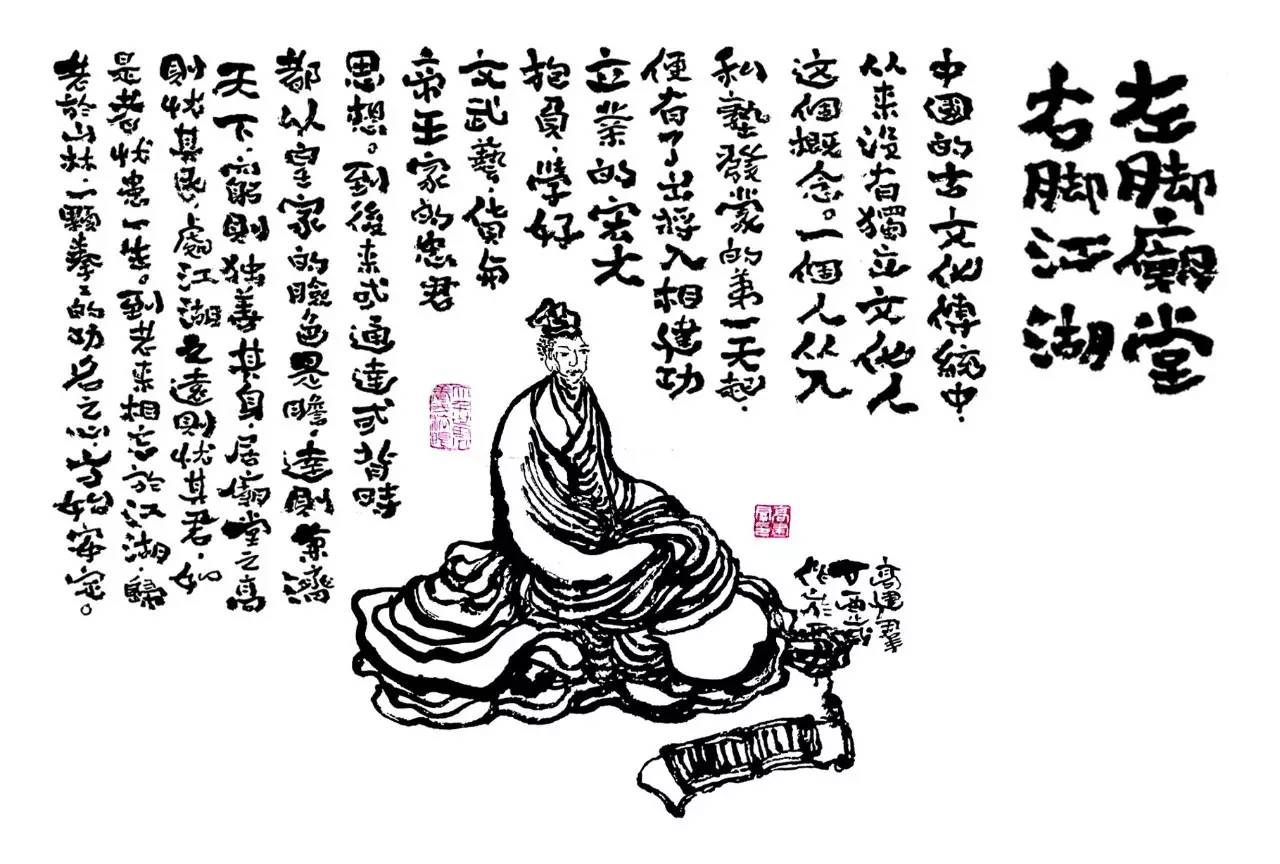 左脚廟堂
右脚江湖
中國的古文化傳統中，
从来没有獨立文化人
这個概念。一個人从入
私塾發蒙的第一天起，
便有了出將入相建功
立業的宏大
抱負，學好
文武藝，貨與
帝王家的忠君
思想。到後来或通達或背時
都以皇家的臉色思瞻，達則兼濟
天下，窮則独善其身，居廟堂之高
則忧其民，處江湖之遠則忧其君，如
是者忧患一生。到老来相忘於江湖，歸
老於山林，一顆拳拳的功名之心，方始安定。
高建羣
丁酉